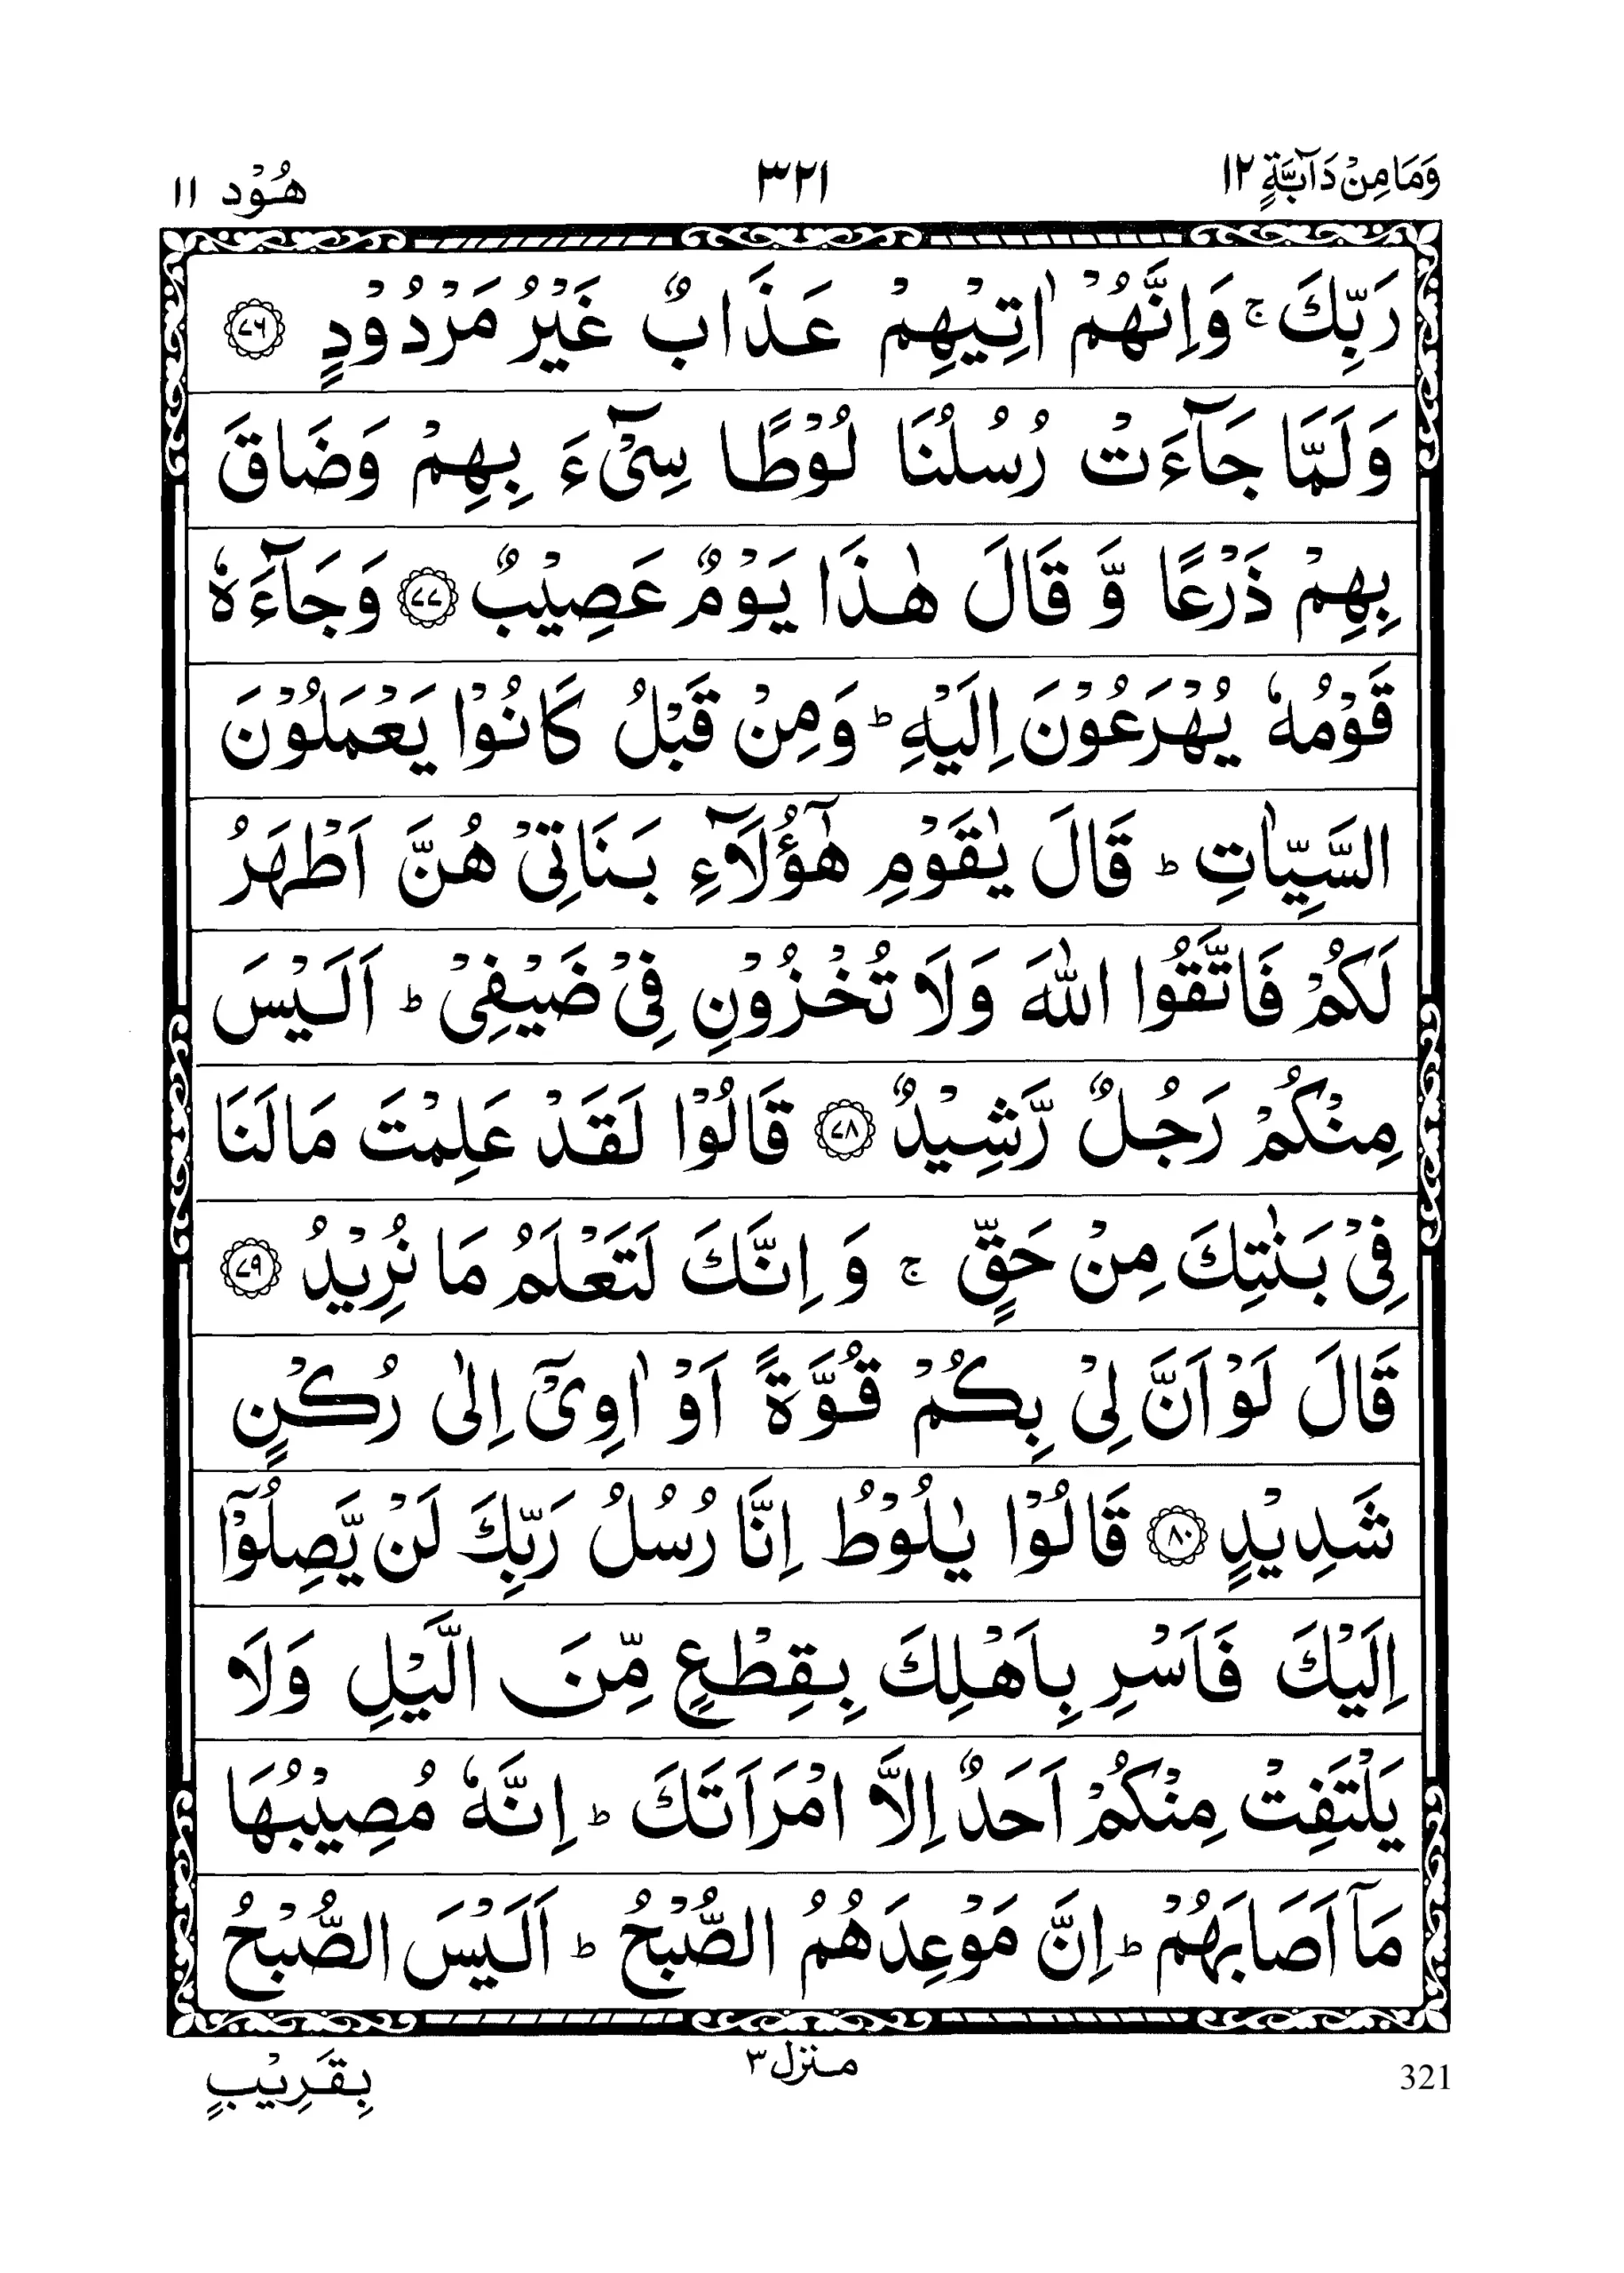 وَمَا مِنْ دَآبَّةٍ ١٢ ٣٢١ هُوْد ١١
رَبِّكَ ۚ وَاِنَّهُمْ اٰتِيْهِمْ عَذَابٌ غَيْرُ مَرْدُوْدٍ ﴿٧٦﴾
وَلَمَّا جَآءَتْ رُسُلُنَا لُوْطًا سِيْٓءَ بِهِمْ وَضَاقَ
بِهِمْ ذَرْعًا وَّ قَالَ هٰذَا يَوْمٌ عَصِيْبٌ ﴿٧٧﴾ وَجَآءَهٗ
قَوْمُهٗ يُهْرَعُوْنَ اِلَيْهِ ؕ وَمِنْ قَبْلُ كَانُوْا يَعْمَلُوْنَ
السَّيِّاٰتِ ؕ قَالَ يٰقَوْمِ هٰٓؤُلَآءِ بَنَاتِيْ هُنَّ اَطْهَرُ
لَكُمْ فَاتَّقُوا اللّٰهَ وَلَا تُخْزُوْنِ فِيْ ضَيْفِيْ ؕ اَلَيْسَ
مِنْكُمْ رَجُلٌ رَّشِيْدٌ ﴿٧٨﴾ قَالُوْا لَقَدْ عَلِمْتَ مَا لَنَا
فِيْ بَنٰتِكَ مِنْ حَقٍّ ۚ وَ اِنَّكَ لَتَعْلَمُ مَا نُرِيْدُ ﴿٧٩﴾
قَالَ لَوْ اَنَّ لِيْ بِكُمْ قُوَّةً اَوْ اٰوِيْٓ اِلٰى رُكْنٍ
شَدِيْدٍ ﴿٨٠﴾ قَالُوْا يٰلُوْطُ اِنَّا رُسُلُ رَبِّكَ لَنْ يَّصِلُوْٓا
اِلَيْكَ فَاَسْرِ بِاَهْلِكَ بِقِطْعٍ مِّنَ الَّيْلِ وَلَا
يَلْتَفِتْ مِنْكُمْ اَحَدٌ اِلَّا امْرَاَتَكَ ؕ اِنَّهٗ مُصِيْبُهَا
مَآ اَصَابَهُمْ ؕ اِنَّ مَوْعِدَهُمُ الصُّبْحُ ؕ اَلَيْسَ الصُّبْحُ
منزل ٣
بِقَرِيْبٍ
321